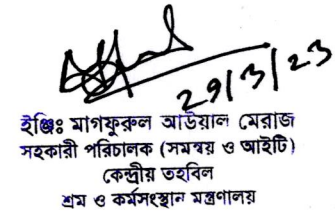 29/3/23
ইঞ্জিঃ মাগফুরুল আউয়াল মেরাজ
সহকারী পরিচালক (সমন্বয় ও আইটি)
কেন্দ্রীয় তহবিল
শ্রম ও কর্মসংস্থান মন্ত্রণালয়